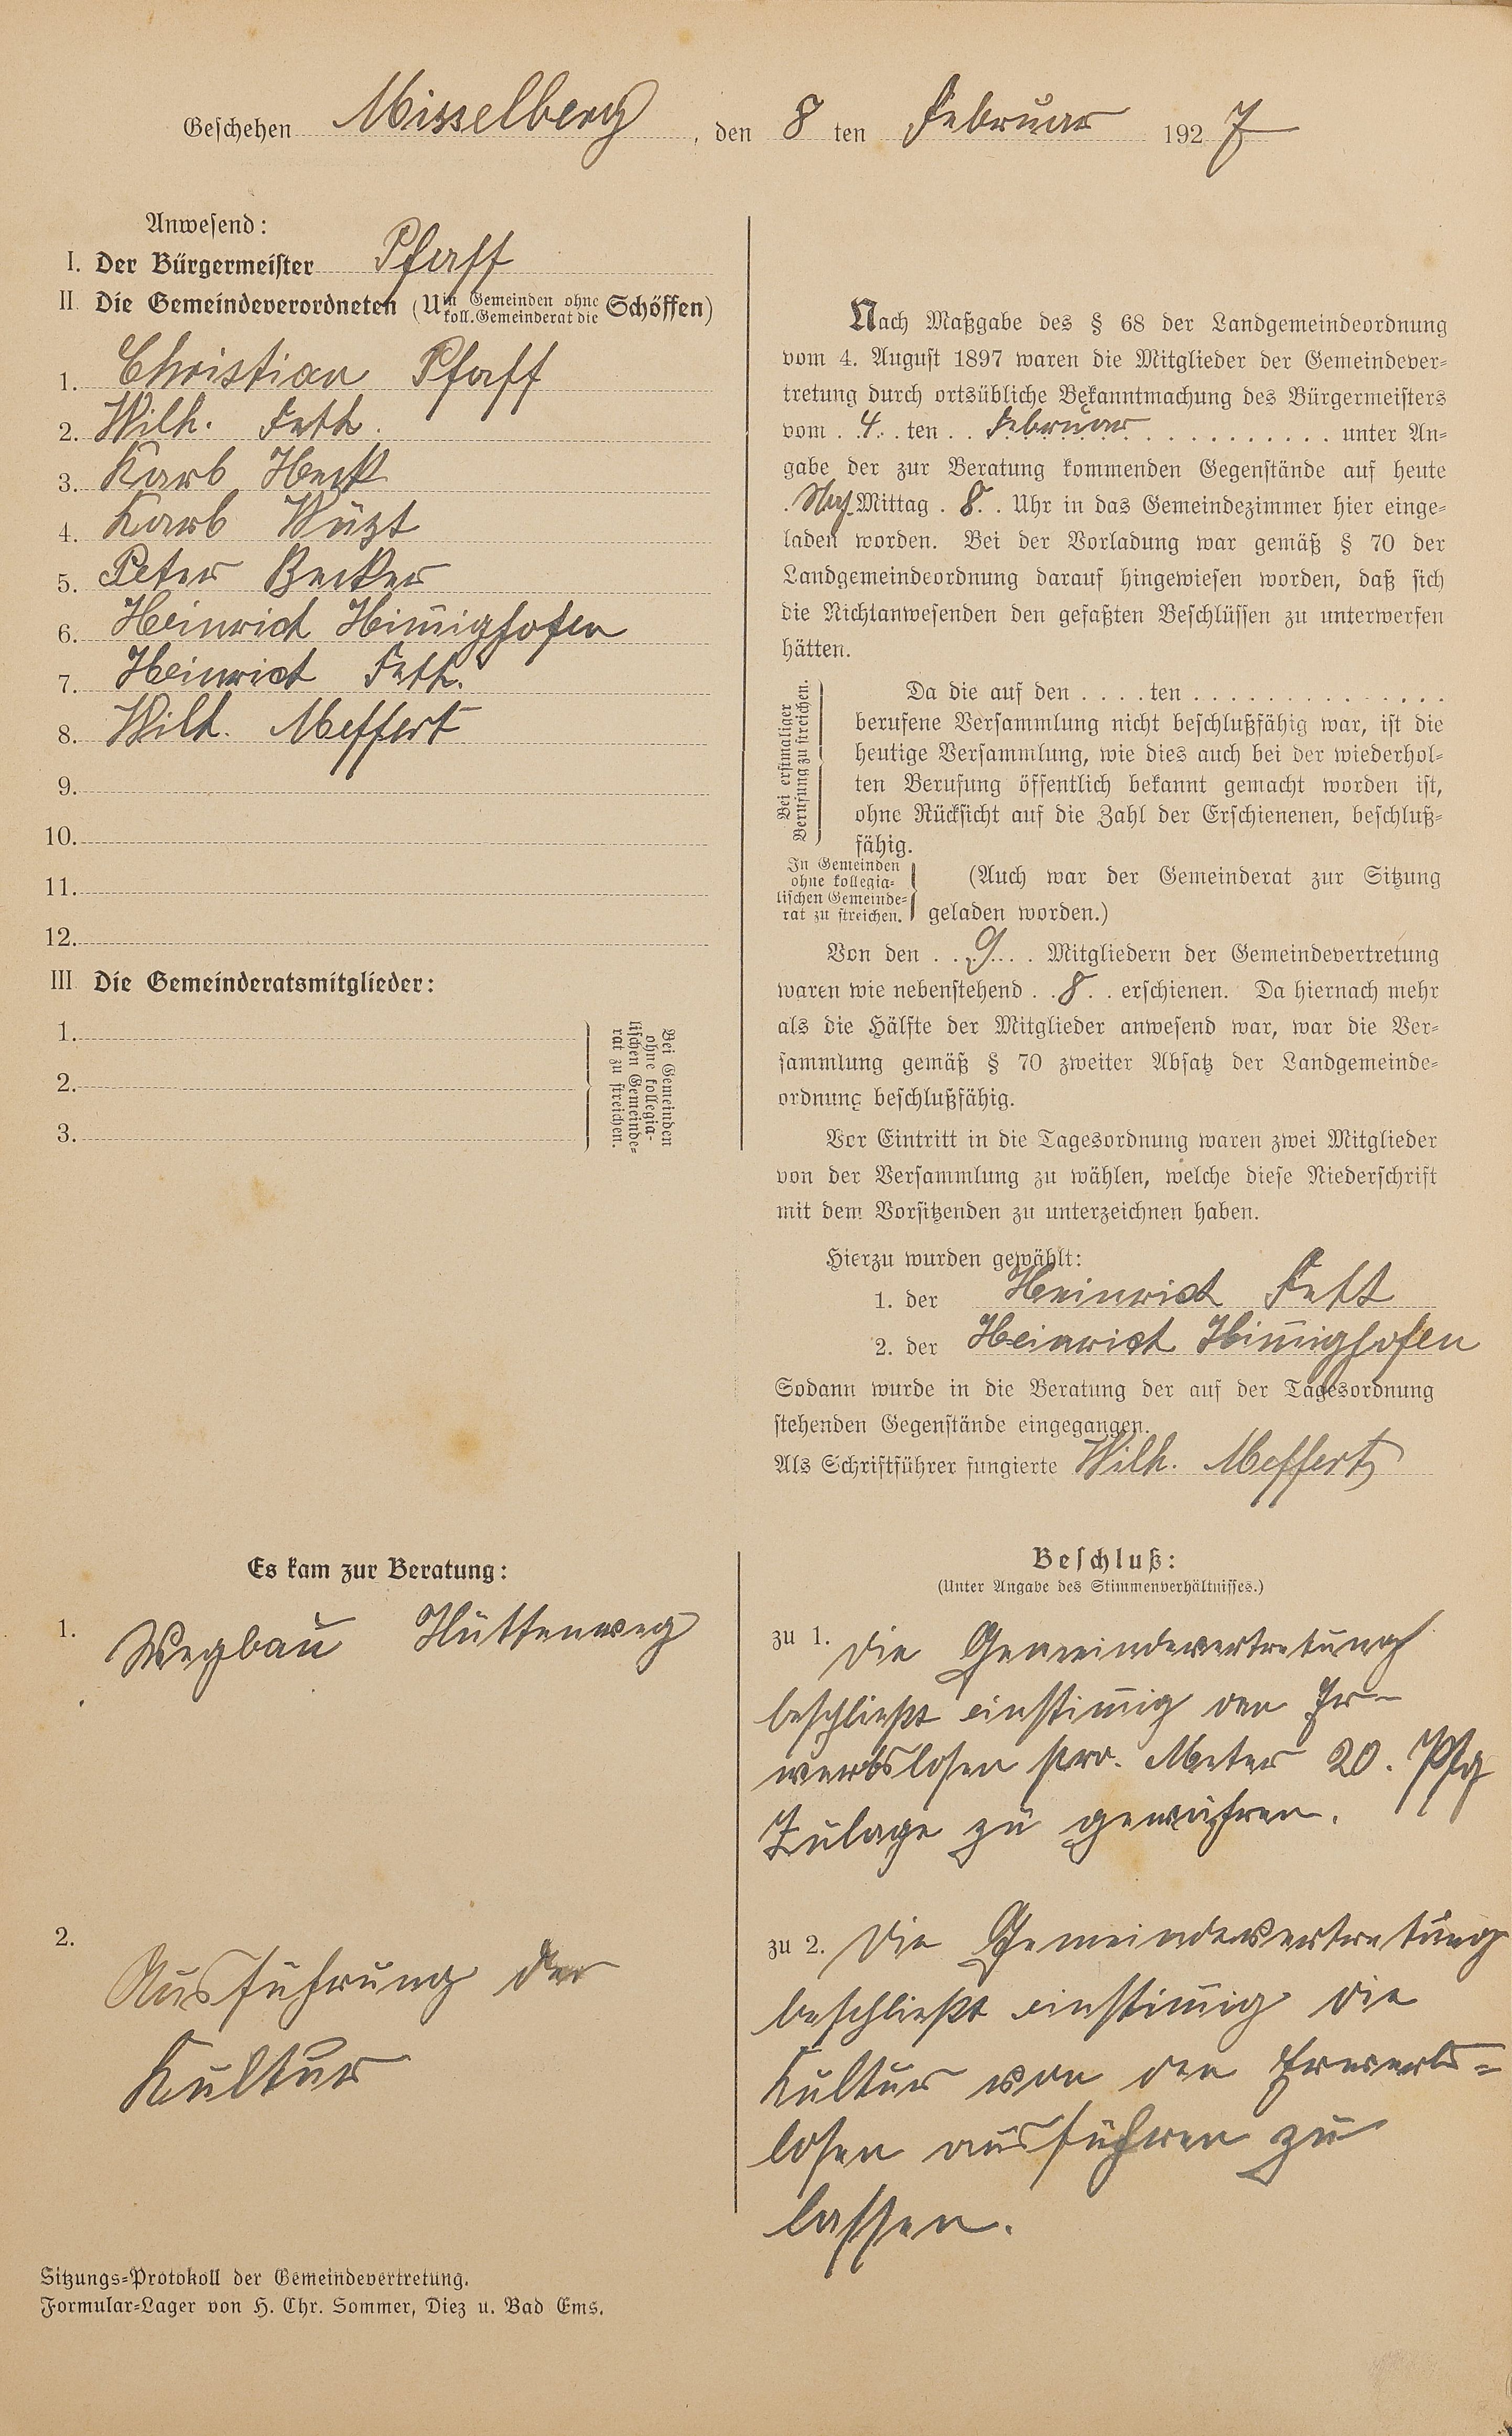 Geschehen Misselberg, den 8 ten Februar 1927
Anwesend:
I. Der Bürgermeister Pfaff
II. Die Gemeindeverordneten (U in Gemeinden ohne koll. Gemeinderat die Schöffen)
1. Christian Pfaff
2. Wilh. Fett.
3. Karl Heck
4.
5. Peter Becker
6. Heinrich Him̄ighofen
7. Heinrich Fett.
8. Wilh. Meffert
9.
10.
11.
12.
III Die Gemeinderatsmitglieder:
1.
2.
3.
Bei Gemeinden
ohne kollegia-
lischen Gemeinde-
rat zu streichen.
Nach Maßgabe des § 68 der Landgemeindeordnung
vom 4. August 1897 waren die Mitglieder der Gemeindever-
tretung durch ortsübliche Bekanntmachung des Bürgermeisters
vom 4. ten Februar unter An-
gabe der zur Beratung kommenden Gegenstände auf heute
Mittag 8. Uhr in das Gemeindezimmer hier einge-
laden worden. Bei der Vorladung war gemäß § 70 der
Landgemeindeordnung darauf hingewiesen worden, daß sich
die Nichtanwesenden den gefaßten Beschlüssen zu unterwerfen
hätten.
Bei erstmaliger
Berufung zu streichen.
Da die auf den . . . . ten . . . . . . . . . . . . . .
berufene Versammlung nicht beschlußfähig war, ist die
heutige Versammlung, wie dies auch bei der wiederhol-
ten Berufung öffentlich bekannt gemacht worden ist,
ohne Rücksicht auf die Zahl der Erschienenen, beschluß-
fähig.
In Gemeinden
ohne kollegia-
lischen Gemeinde-
rat zu streichen.
(Auch war der Gemeinderat zur Sitzung
geladen worden.)
Von den 9 Mitgliedern der Gemeindevertretung
waren wie nebenstehend 8 erschienen. Da hiernach mehr
als die Hälfte der Mitglieder anwesend war, war die Ver-
sammlung gemäß § 70 zweiter Absatz der Landgemeinde-
ordnung beschlußfähig.
Vor Eintritt in die Tagesordnung waren zwei Mitglieder
von der Versammlung zu wählen, welche diese Niederschrift
mit dem Vorsitzenden zu unterzeichnen haben.
Hierzu wurden gewählt:
1. der Heinrich Fett
2. der Heinrich Him̄ighofen
Sodann wurde in die Beratung der auf der Tagesordnung
stehenden Gegenstände eingegangen.
Als Schriftführer fungierte Wilh. Meffert
Es kam zur Beratung:
1. Wegbau Hüttenweg
2. Ausführung der
Kultur
Beschluß:
(Unter Angabe des Stimmenverhältnisses.)
zu 1. Die Gemeindevertretung
beschließt einstim̄ig den Er-
werbslosen pro. Meter 20. Pfg
Zulage zu gewähren.
zu 2. Die Gemeindevertretung
beschließt einstim̄ig die
Kultur von den Erwerbs-
losen ausführen zu
lassen.
Sitzungs-Protokoll der Gemeindevertretung.
Formular-Lager von H. Chr. Sommer, Diez u. Bad Ems.